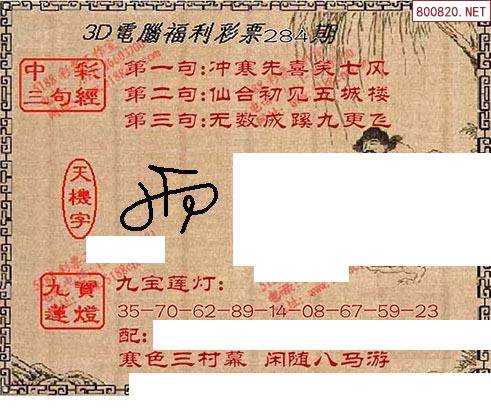 800820.NET
3D電腦福利彩票284期
中彩
三句經
第一句:冲寒先喜笑七风
第二句:仙台初见五城楼
第三句:无数成蹊九更飞
天機字
九寶
蓮燈
九宝莲灯:
35-70-62-89-14-08-67-59-23
配:
寒色三村幕 闲随八马游